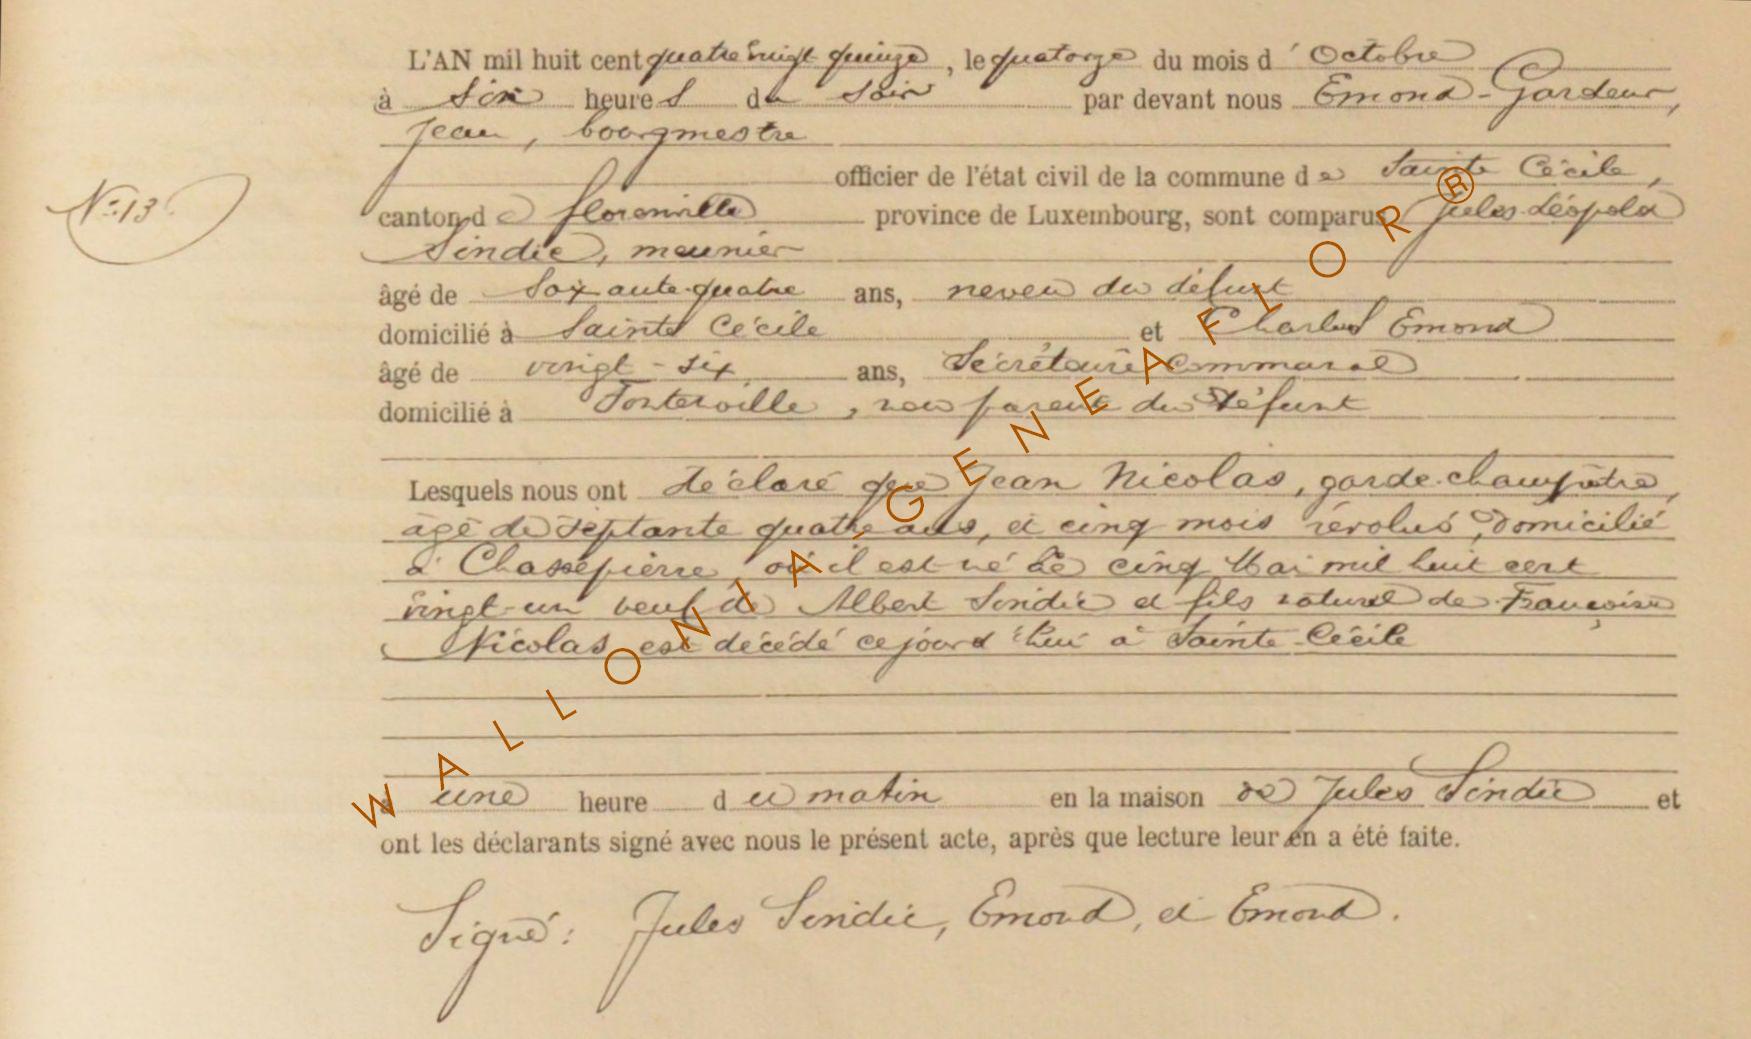 L'AN mil huit cent quatre vingt quinze, le quatorze du mois d'Octobre
à six heures du soir par devant nous Emond-Gardeur,
Jean, bourgmestre
officier de l'état civil de la commune de Sainte Cécile,
N° 13
canton de florenville province de Luxembourg, sont comparus Jules Léopold
Sindic, meunier
âgé de Soxante quatre ans, neveu du défunt
domicilié à Sainte Cécile et Charles Emond
âgé de vingt-six ans, Sécrétaire Communal
domicilié à Fontenoille, non parent du défunt
Lesquels nous ont déclaré que Jean Nicolas, garde-champêtre,
âgé de septante quatre ans, et cinq mois révolus, domicilié
à Chassepierre, où il est né le cinq Mai mil huit cent
vingt-un veuf de Albert Sindic et fils naturel de Françoise
Nicolas est décédé ce jourd'hui à Sainte-Cécile
à une heure du matin en la maison de Jules Sindic et
ont les déclarants signé avec nous le présent acte, après que lecture leur en a été faite.
Signé: Jules Sindic, Emond, et Emond.
WALLONIA-GENEAFLOR®